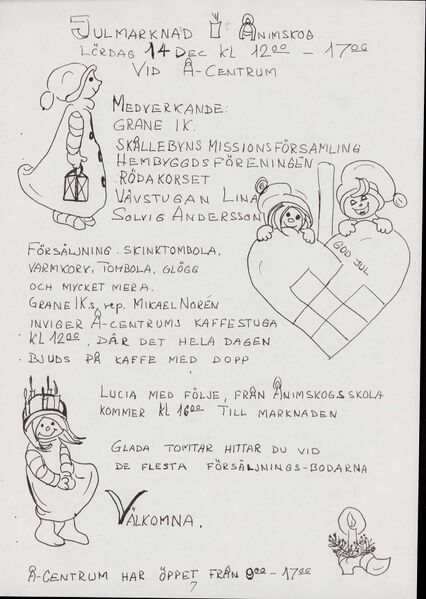 JULMARKNAD I ÅNIMSKOG
LÖRDAG 14 DEC KL 12⁰⁰ – 17⁰⁰
VID Å-CENTRUM
MEDVERKANDE:
GRANE IK.
SKÅLLEBYNS MISSIONSFÖRSAMLING
HEMBYGGDSFÖRENINGEN
RÖDAKORSET
VÄVSTUGAN LINA
SOLVIG ANDERSSON
GOD JUL
FÖRSÄLJNING. SKINKTOMBOLA,
VARMKORV, TOMBOLA, GLÖGG
OCH MYCKET MERA.
GRANE IK:s, rep. MIKAEL NORÉN
INVIGER Å-CENTRUMS KAFFESTUGA
KL 12⁰⁰, DÄR DET HELA DAGEN
BJUDS PÅ KAFFE MED DOPP
LUCIA MED FÖLJE, FRÅN ÅNIMSKOGSSKOLA
KOMMER KL 16⁰⁰ TILL MARKNADEN
GLADA TOMTAR HITTAR DU VID
DE FLESTA FÖRSÄLJNINGS-BODARNA
VÄLKOMNA.
Å-CENTRUM HAR ÖPPET FRÅN 9⁰⁰ – 17⁰⁰
7